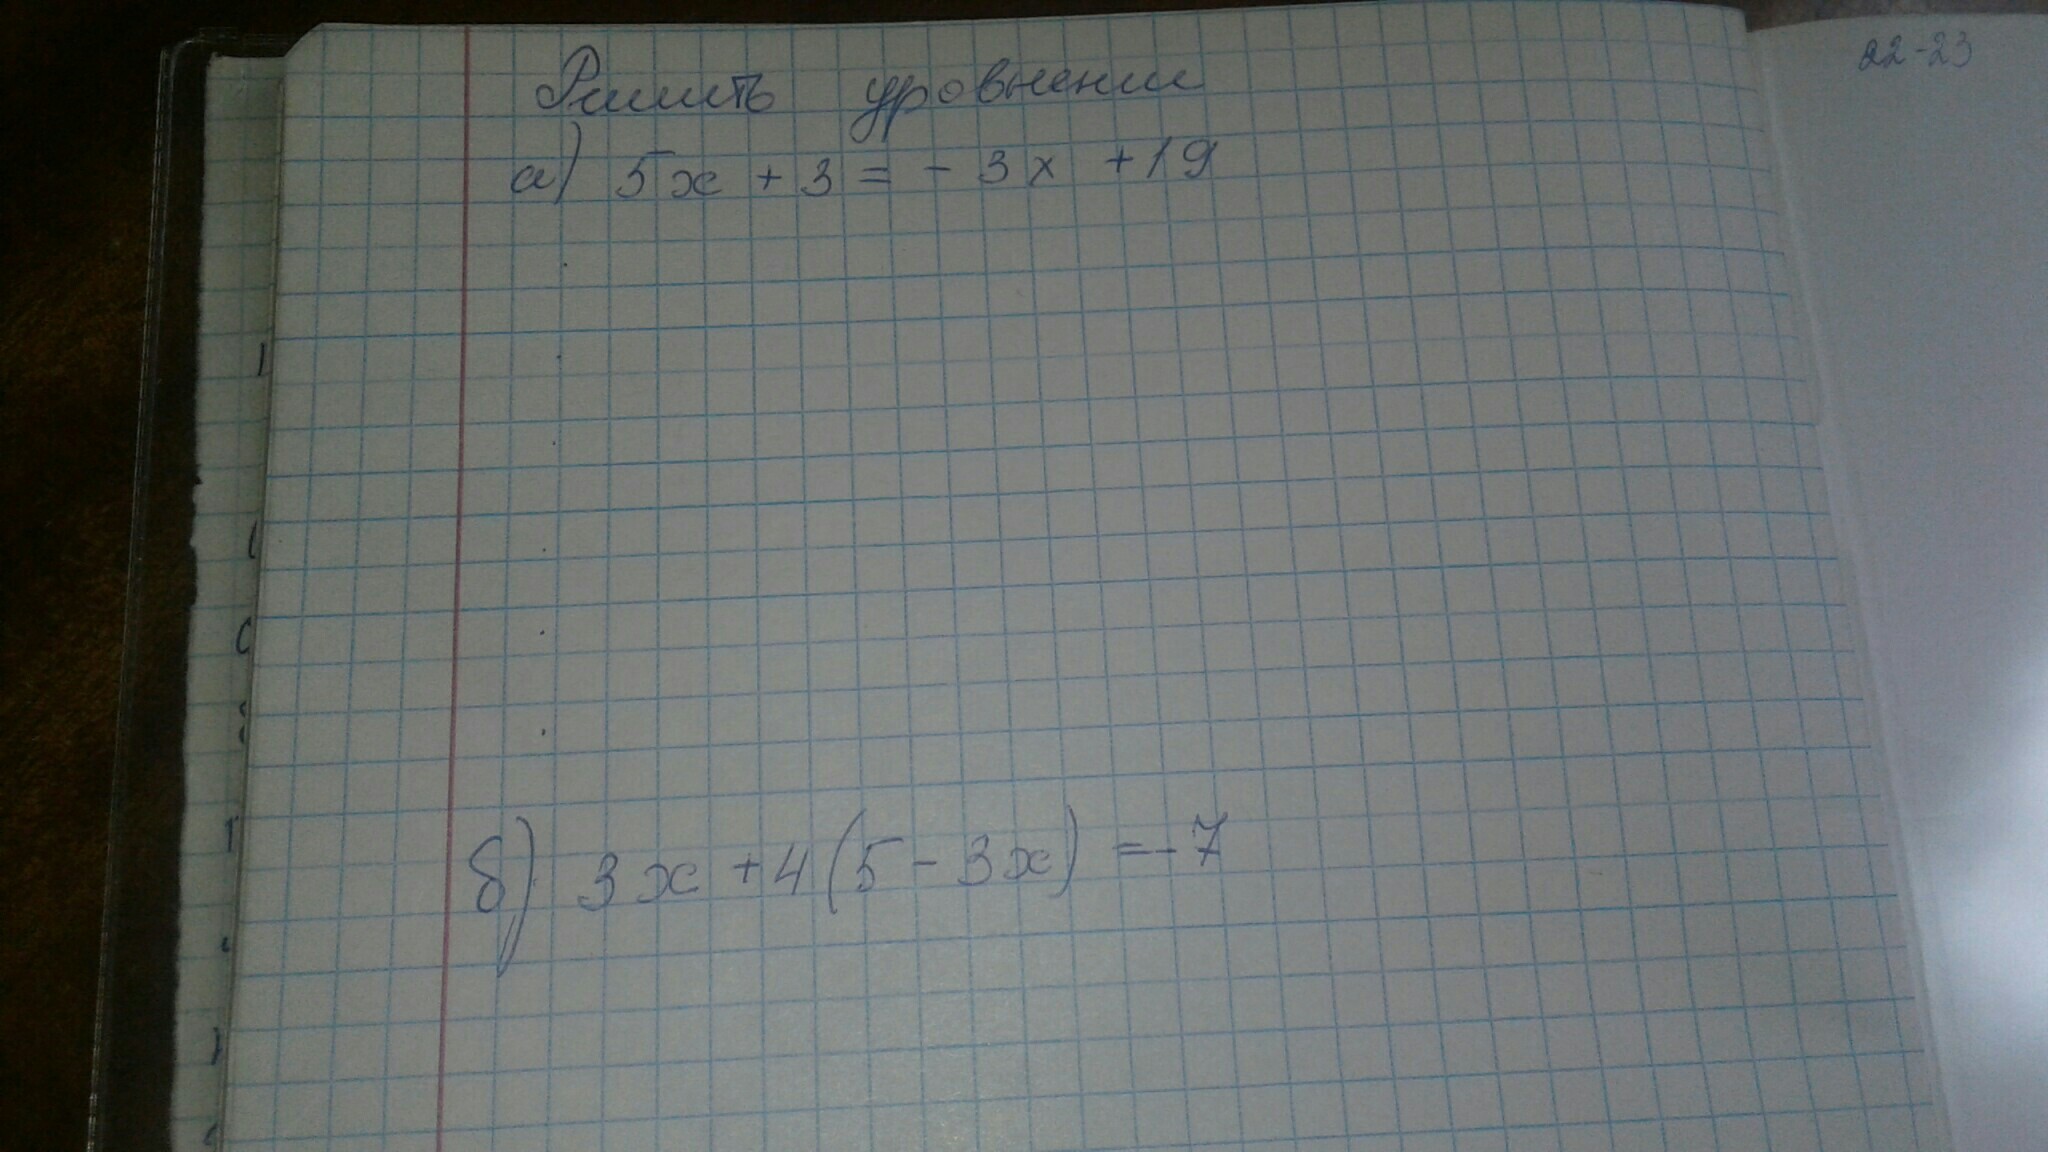 22-23
Решить уровнении
а) 5x + 3 = - 3x + 19
б) 3x + 4(5 - 3x) = -7